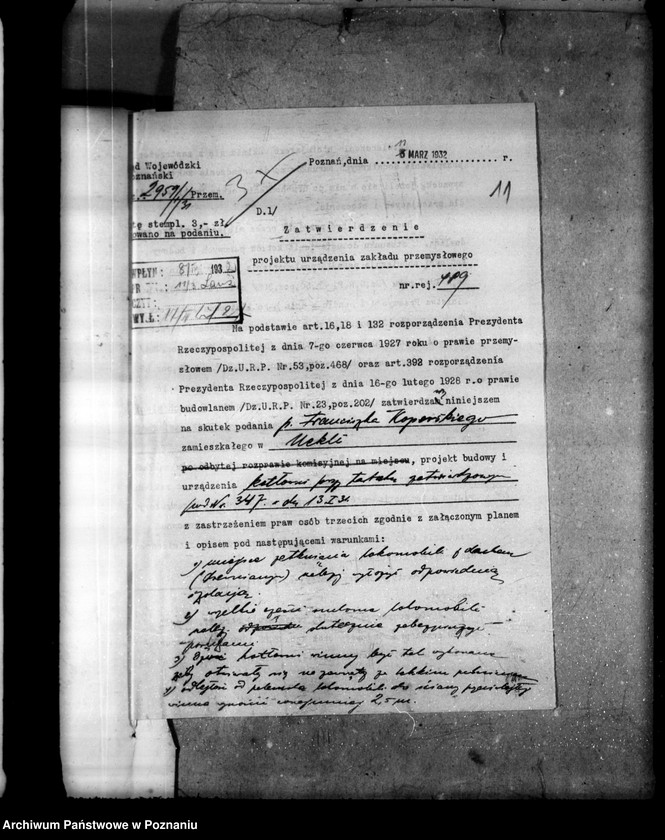 d Wojewódzki
oznański
2959/ /Przem.
3 x
Poznań,dnia 8 MARZ 1932 r.
11
tę stempl. 3,- zł
owano na podaniu.
D.1/
Zatwierdzenie
projektu urządzenia zakładu przemysłowego
nr.rej. 489
WPŁYN: 8/ 193
Na podstawie art.16,18 i 132 rozporządzenia Prezydenta
Rzeczypospolitej z dnia 7-go czerwca 1927 roku o prawie przemy-
słowem /Dz.U.R.P. Nr.53,poz.468/ oraz art.392 rozporządzenia
Prezydenta Rzeczypospolitej z dnia 16-go lutego 1928 r.o prawie
budowlanem /Dz.U.R.P. Nr.23,poz.202/ zatwierdzam niniejszem
na skutek podania p. Franciszka Koperskiego
zamieszkałego w Nekli
po odbytej rozprawie komisyjnej na miejscu, projekt budowy i
urządzenia kotłowni przy tartaku zatwierdzonym
pod Nr. 347. z dn 13.I 31.
z zastrzeżeniem praw osób trzecich zgodnie z załączonym planem
i opisem pod następującemi warunkami:
1) miejsce zetknienia lokomobili z dachem
(drewnianym) należy wyłożyć odpowiednią
izolacją.
2) wszelkie części lokomobili
należy skutecznie zabezpieczyć
3) Drzwi kotłowni winny być tak wykonane
żeby otwierały się na zewnątrz za lekkim
4) odległość od paleniska lokomobili do ściany
winna wynosić conajmniej 2 m.
Archiwum Państwowe w Poznaniu